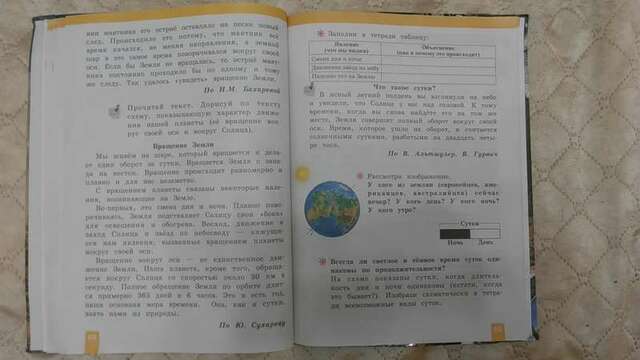 нии маятника его остриё оставляло на песке новый
след. Происходило это потому, что маятник всё
время качался, не меняя направления, а земной
шар в это самое время поворачивался вокруг своей
оси. Если бы Земля не вращалась, то остриё маят-
ника постоянно проходило бы по одному и тому
же следу. Так удалось «увидеть» вращение Земли.
По
Прочитай текст. Дорисуй по тексту
схему, показывающую характер движе-
ния нашей планеты (её вращение вок-
руг своей оси и вокруг Солнца).
Вращение Земли
Мы живём на шаре, который вращается и дела-
ет один оборот за сутки. Вращается Земля с запа-
да на восток. Вращение происходит равномерно и
плавно и для нас незаметно.
С вращением планеты связаны некоторые явле-
ния, возникающие на Земле.
Во-первых, это смена дня и ночи. Плавно пово-
рачиваясь, Земля подставляет Солнцу свои «бока»
для освещения и обогрева. Восход, движение и
заход Солнца и звёзд по небосводу — кажущие-
ся нам явления, вызванные вращением планеты
вокруг своей оси.
Вращение вокруг оси — не единственное дви-
жение Земли. Наша планета, кроме того, обраща-
ется вокруг Солнца со скоростью около 30 км в
секунду. Полное обращение Земли по орбите длит-
ся примерно 365 дней и 6 часов. Это и есть год,
наша основная мера времени. Она, как и сутки,
взята нами из природы.
По Ю.
Заполни в тетради таблицу:
Явление
(что мы видим)
Объяснение
(как и почему это происходит)
Смена дня и ночи
Движение звёзд на небе
Падение тел на Землю
Что такое сутки?
В ясный летний полдень вы взглянули на небо
и увидели, что Солнце у вас над головой. К тому
времени, когда вы снова найдёте его на том же
месте, Земля совершит полный оборот вокруг своей
оси. Время, которое ушло на оборот, и считается
солнечными сутками, разбитыми на двадцать четы-
ре часа.
По В. Альтшулер, В. Гуревич
Рассмотри изображение.
У кого из землян (европейцев, аме-
риканцев, австралийцев) сейчас
вечер? У кого день? У кого ночь?
У кого утро?
Сутки
Ночь День
Всегда ли светлое и тёмное время суток оди-
наковы по продолжительности?
На схеме показаны сутки, когда длитель-
ность дня и ночи одинаковы (кстати, когда
это бывает?). Изобрази схематически в тетра-
ди всевозможные виды суток.